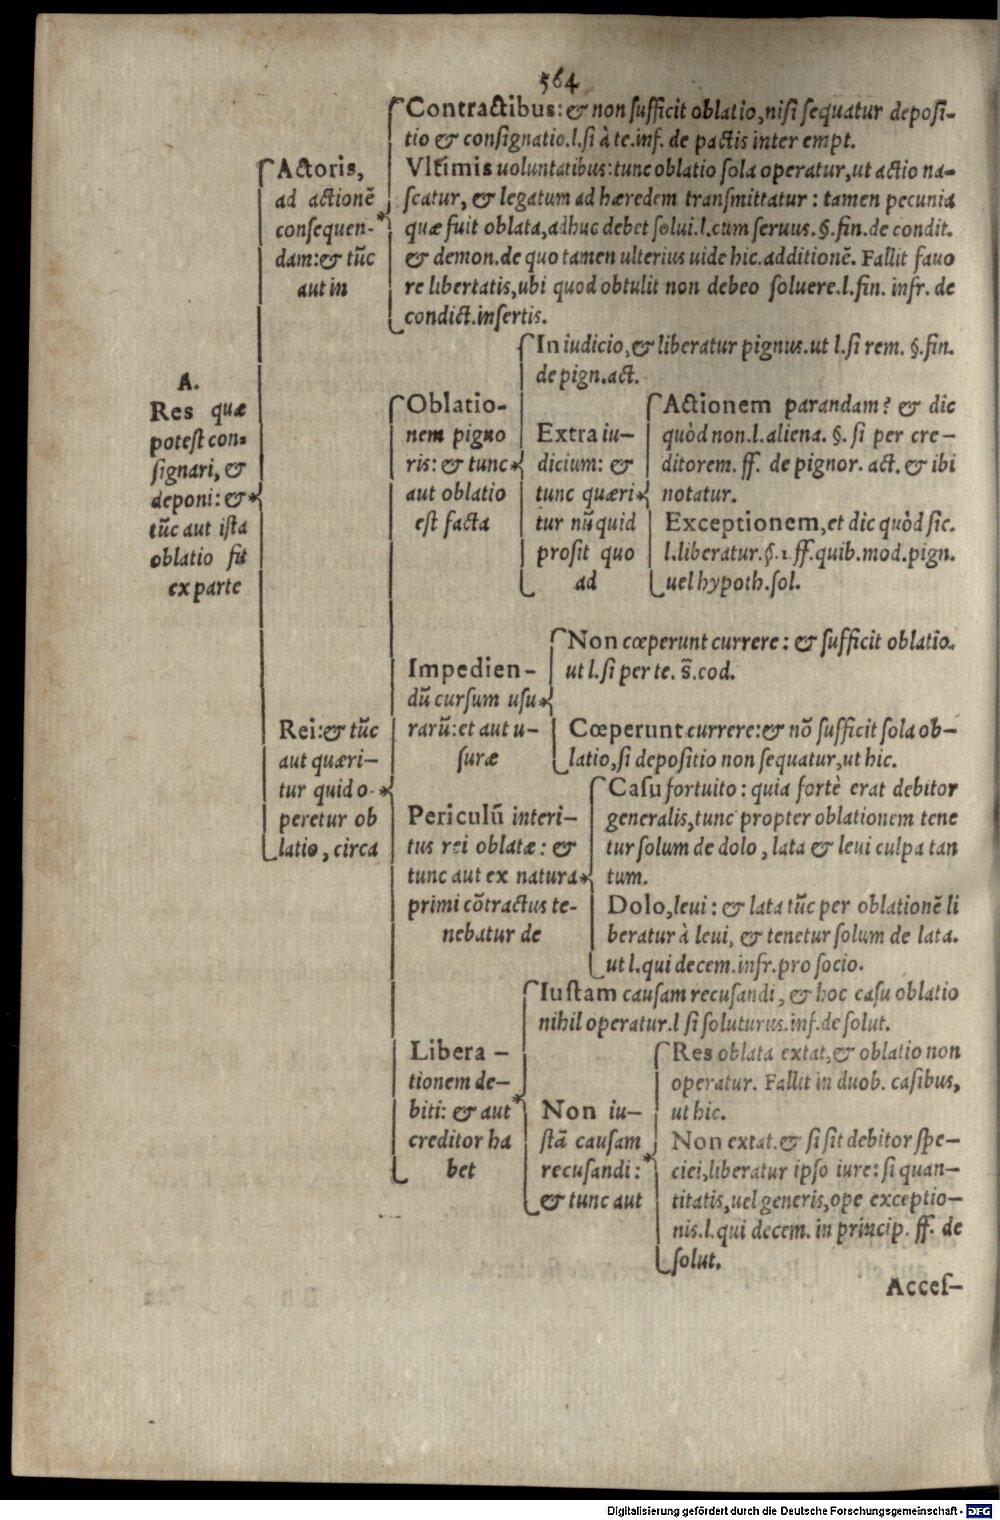 564
A.
Res quæ
potest con-
signari, &
deponi: &
tũc aut ista
oblatio fit
ex parte
Actoris,
ad actionẽ
consequen-
dam: & tũc
aut in
Contractibus: & non sufficit oblatio, nisi sequatur deposi-
tio & consignatio. l. si à te. inf. de pactis inter empt.
Vltimis uoluntatibus: tunc oblatio sola operatur, ut actio na-
scatur, & legatum ad hæredem transmittatur: tamen pecunia
quæ fuit oblata, adhuc debet solui. l. cum seruus. §. fin. de condit.
& demon. de quo tamen ulterius uide hic. additionẽ. Fallit fauo
re libertatis, ubi quod obtulit non debeo soluere. l. fin. infr. de
condict. insertis.
Rei: & tũc
aut quæri-
tur quid o-
peretur ob
latio, circa
Oblatio-
nem pigno
ris: & tunc
aut oblatio
est facta
In iudicio, & liberatur pignus. ut l. si rem. §. fin.
de pign. act.
Extra iu-
dicium: &
tunc quæri
tur nũquid
prosit quo
ad
Actionem parandam? & dic
quòd non. l. aliena. §. si per cre-
ditorem. ff. de pignor. act. & ibi
notatur.
Exceptionem, et dic quòd sic.
l. liberatur. §. 1. ff. quib. mod. pign.
uel hypoth. sol.
Impedien-
dũ cursum usu
rarũ: et aut u-
suræ
Non cœperunt currere: & sufficit oblatio.
ut l. si per te. s̃. cod.
Cœperunt currere: & nõ sufficit sola ob-
latio, si depositio non sequatur, ut hic.
Periculũ interi-
tus rei oblatæ: &
tunc aut ex natura
primi cõtractus te-
nebatur de
Casu fortuito: quia fortè erat debitor
generalis, tunc propter oblationem tene
tur solum de dolo, lata & leui culpa tan
tum.
Dolo, leui: & lata tũc per oblationẽ li
beratur à leui, & tenetur solum de lata.
ut l. qui decem. infr. pro socio.
Libera-
tionem de-
biti: & aut
creditor ha
bet
Iustam causam recusandi, & hoc casu oblatio
nihil operatur. l si soluturus. inf. de solut.
Non iu-
stã causam
recusandi:
& tunc aut
Res oblata extat, & oblatio non
operatur. Fallit in duob. casibus,
ut hic.
Non extat. & si sit debitor spe-
ciei, liberatur ipso iure: si quan-
titatis, uel generis, ope exceptio-
nis. l. qui decem. in princip. ff. de
solut.
Acces-
Digitalisierung gefördert durch die Deutsche Forschungsgemeinschaft - DFG